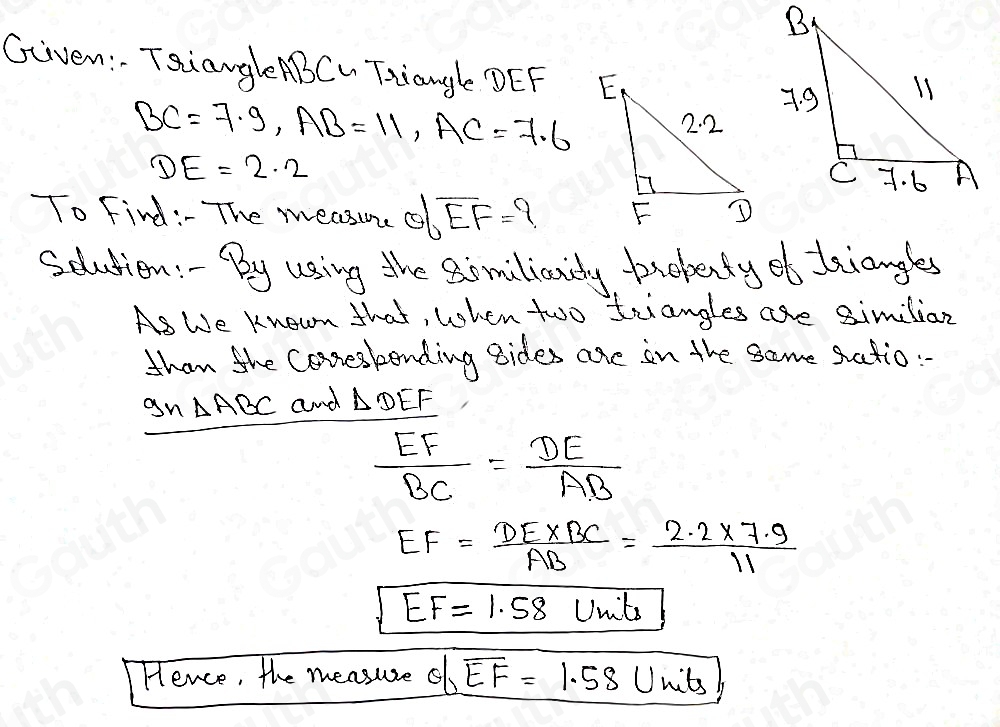 Given:- TriangleABC ~ Triangle DEF
BC = 7.9, AB = 11, AC = 7.6
DE = 2.2
B
7.9
11
C 7.6 A
E
2.2
F D
To Find:- The measure of EF = ?
Solution:- By using the similiarity property of triangles
As We known that, when two triangles are similiar
than the Corresponding sides are in the same ratio:-
In ΔABC and ΔDEF
EF/BC = DE/AB
EF = DE×BC/AB = 2.2×7.9/11
EF = 1.58 Units
Hence, the measure of EF = 1.58 Units